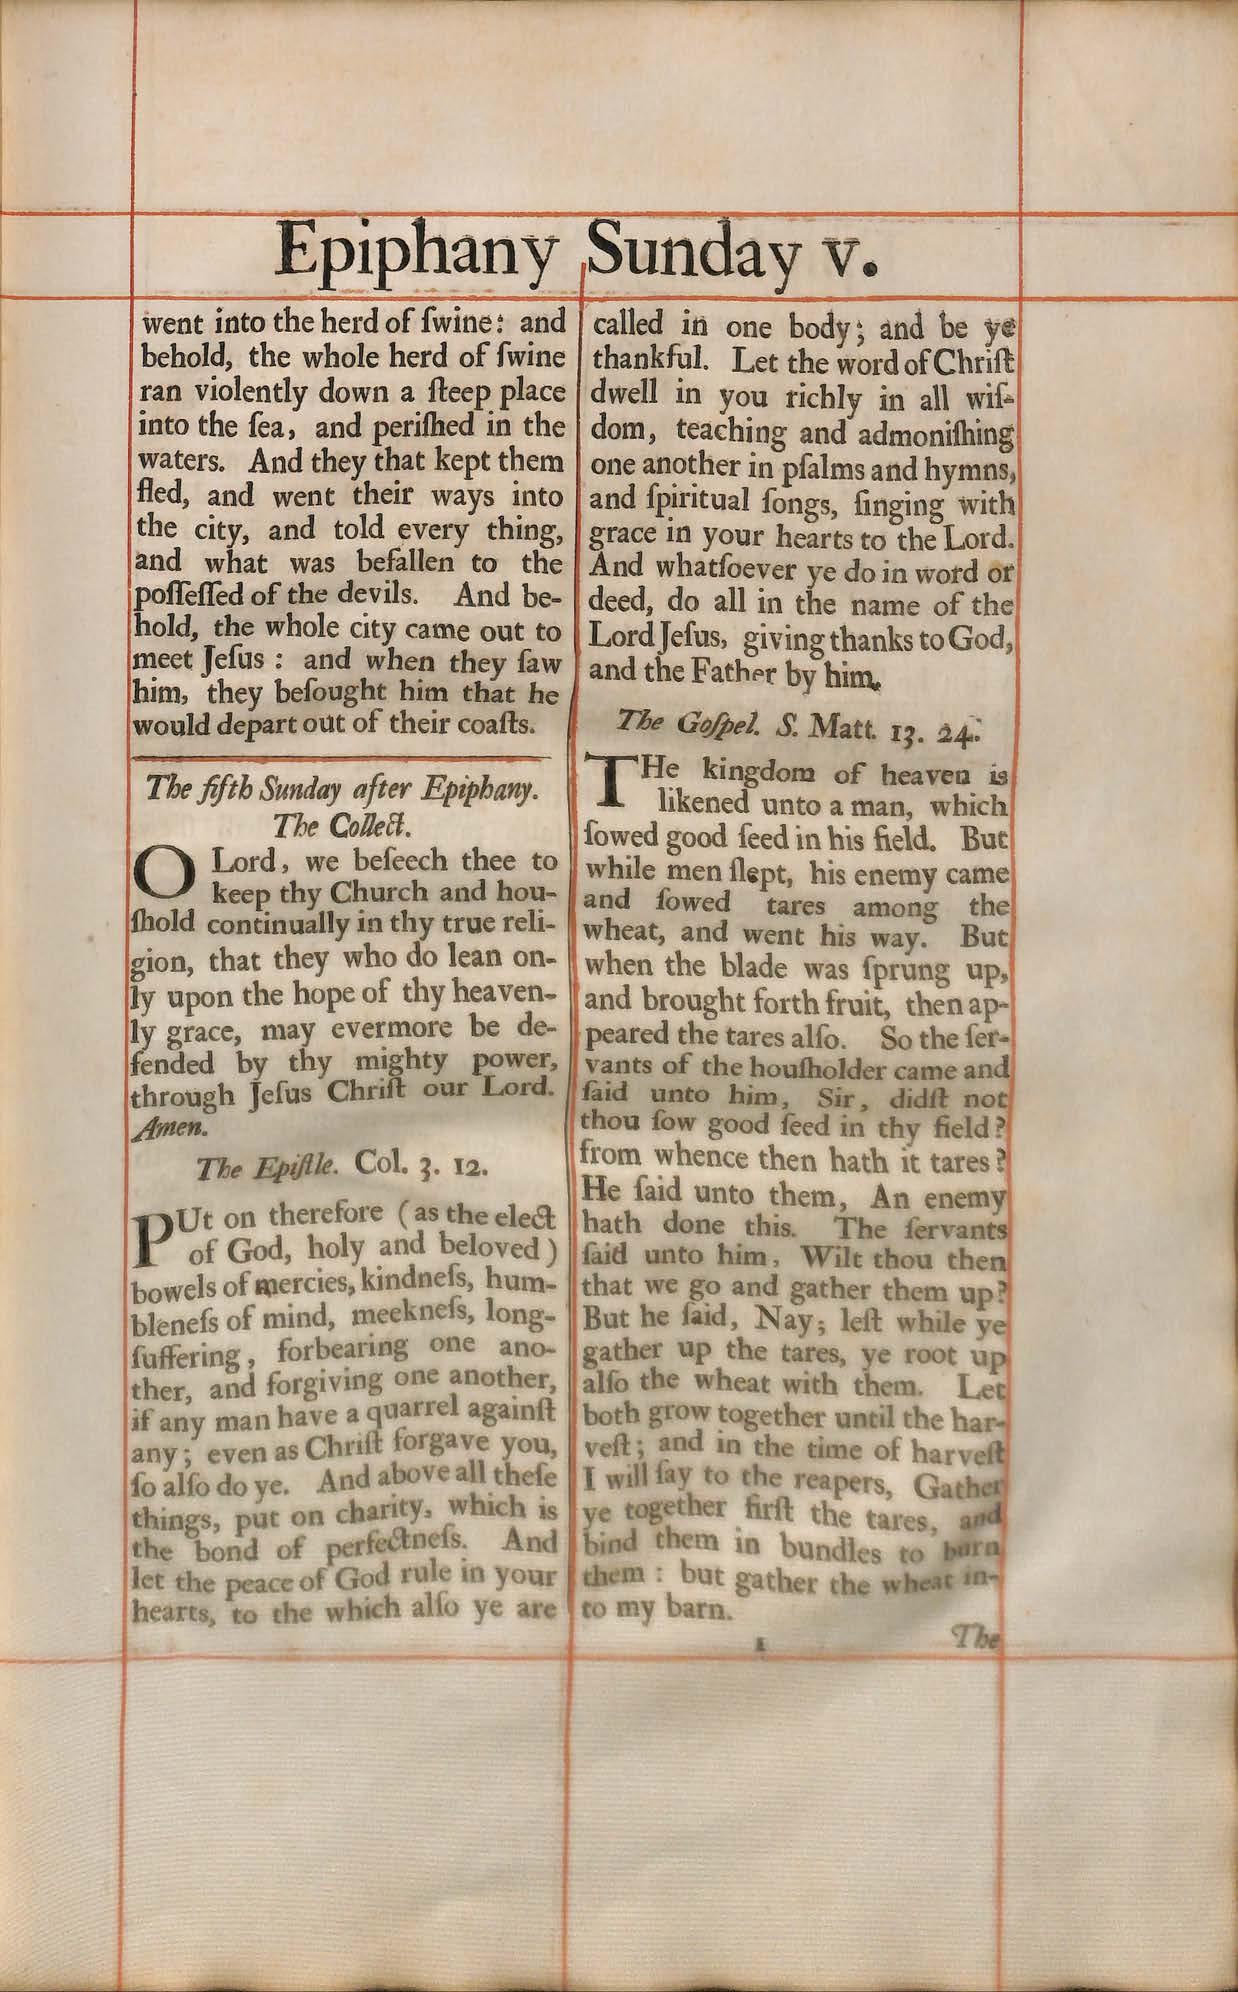 Epiphany Sunday v.
went into the herd of ſwine: and
behold, the whole herd of ſwine
ran violently down a ſteep place
into the ſea, and periſhed in the
waters. And they that kept them
fled, and went their ways into
the city, and told every thing,
and what was befallen to the
poſſeſſed of the devils. And be-
hold, the whole city came out to
meet Jeſus : and when they ſaw
him, they beſought him that he
would depart out of their coaſts.
The fifth Sunday after Epiphany.
The Collect.
O Lord, we beſeech thee to
keep thy Church and hou-
ſhold continually in thy true reli-
gion, that they who do lean on-
ly upon the hope of thy heaven-
ly grace, may evermore be de-
fended by thy mighty power,
through Jeſus Chriſt our Lord.
Amen.
The Epiſtle. Col. 3. 12.
PUt on therefore (as the elect
of God, holy and beloved)
bowels of mercies, kindneſs, hum-
bleneſs of mind, meekneſs, long-
ſuffering, forbearing one ano-
ther, and forgiving one another,
if any man have a quarrel againſt
any; even as Chriſt forgave you,
ſo alſo do ye. And above all theſe
things, put on charity, which is
the bond of perfectneſs. And
let the peace of God rule in your
hearts, to the which alſo ye are
called in one body; and be ye
thankful. Let the word of Chriſt
dwell in you richly in all wiſ-
dom, teaching and admoniſhing
one another in pſalms and hymns,
and ſpiritual ſongs, ſinging with
grace in your hearts to the Lord.
And whatſoever ye do in word or
deed, do all in the name of the
Lord Jeſus, giving thanks to God,
and the Father by him.
The Goſpel. S. Matt. 13. 24.
THe kingdom of heaven is
likened unto a man, which
ſowed good ſeed in his field. But
while men ſlept, his enemy came
and ſowed tares among the
wheat, and went his way. But
when the blade was ſprung up,
and brought forth fruit, then ap-
peared the tares alſo. So the ſer-
vants of the houſholder came and
ſaid unto him, Sir, didſt not
thou ſow good ſeed in thy field?
from whence then hath it tares?
He ſaid unto them, An enemy
hath done this. The ſervants
ſaid unto him, Wilt thou then
that we go and gather them up?
But he ſaid, Nay; leſt while ye
gather up the tares, ye root up
alſo the wheat with them. Let
both grow together until the har-
veſt; and in the time of harveſt
I will ſay to the reapers, Gather
ye together firſt the tares, and
bind them in bundles to burn
them : but gather the wheat in-
to my barn.
1 The